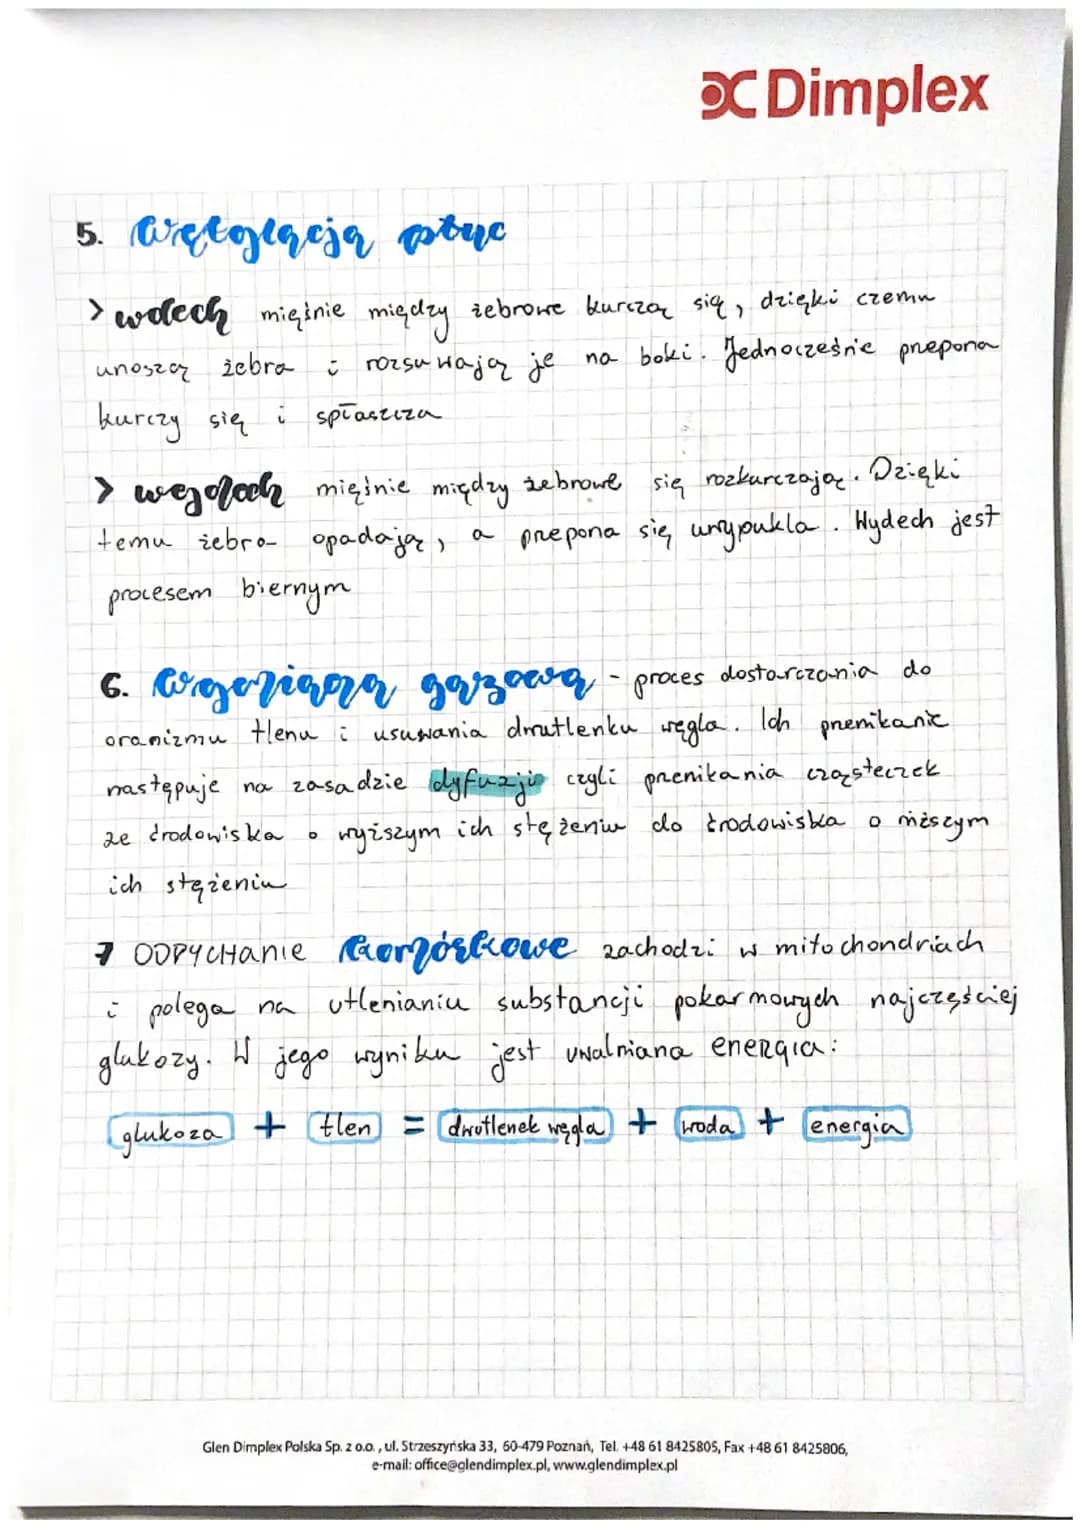 Dimplex
5. Wentylacja płuc
> wdech mięśnie między żebrowe kurczą się, dzięki czemu
unoszą żebra i rozsuwają je na boki. Jednocześnie przepona
kurczy się i spłaszcza
> wydech mięśnie między żebrowe się rozkurczają. Dzięki
temu żebra opadają, a przepona się uwypukla. Wydech jest
procesem biernym
6. Wymiana gazowa - proces dostarczania do
oranizmu tlenu i usuwania dwutlenku węgla. Ich przenikanie
następuje na zasadzie dyfuzji czyli przenikania cząsteczek
ze środowiska o wyższym ich stężeniu do środowiska o niższym
ich stężeniu
7 ODDYCHanIE Komórkowe zachodzi w mitochondriach
i polega na utlenianiu substancji pokarmowych najczęściej
glukozy. W jego wyniku jest uwalniana energia:
glukoza + tlen = dwutlenek węgla + woda + energia
Glen Dimplex Polska Sp. z o.o., ul. Strzeszyńska 33, 60-479 Poznań, Tel. +48 61 8425805, Fax +48 61 8425806,
e-mail: office@glendimplex.pl, www.glendimplex.pl